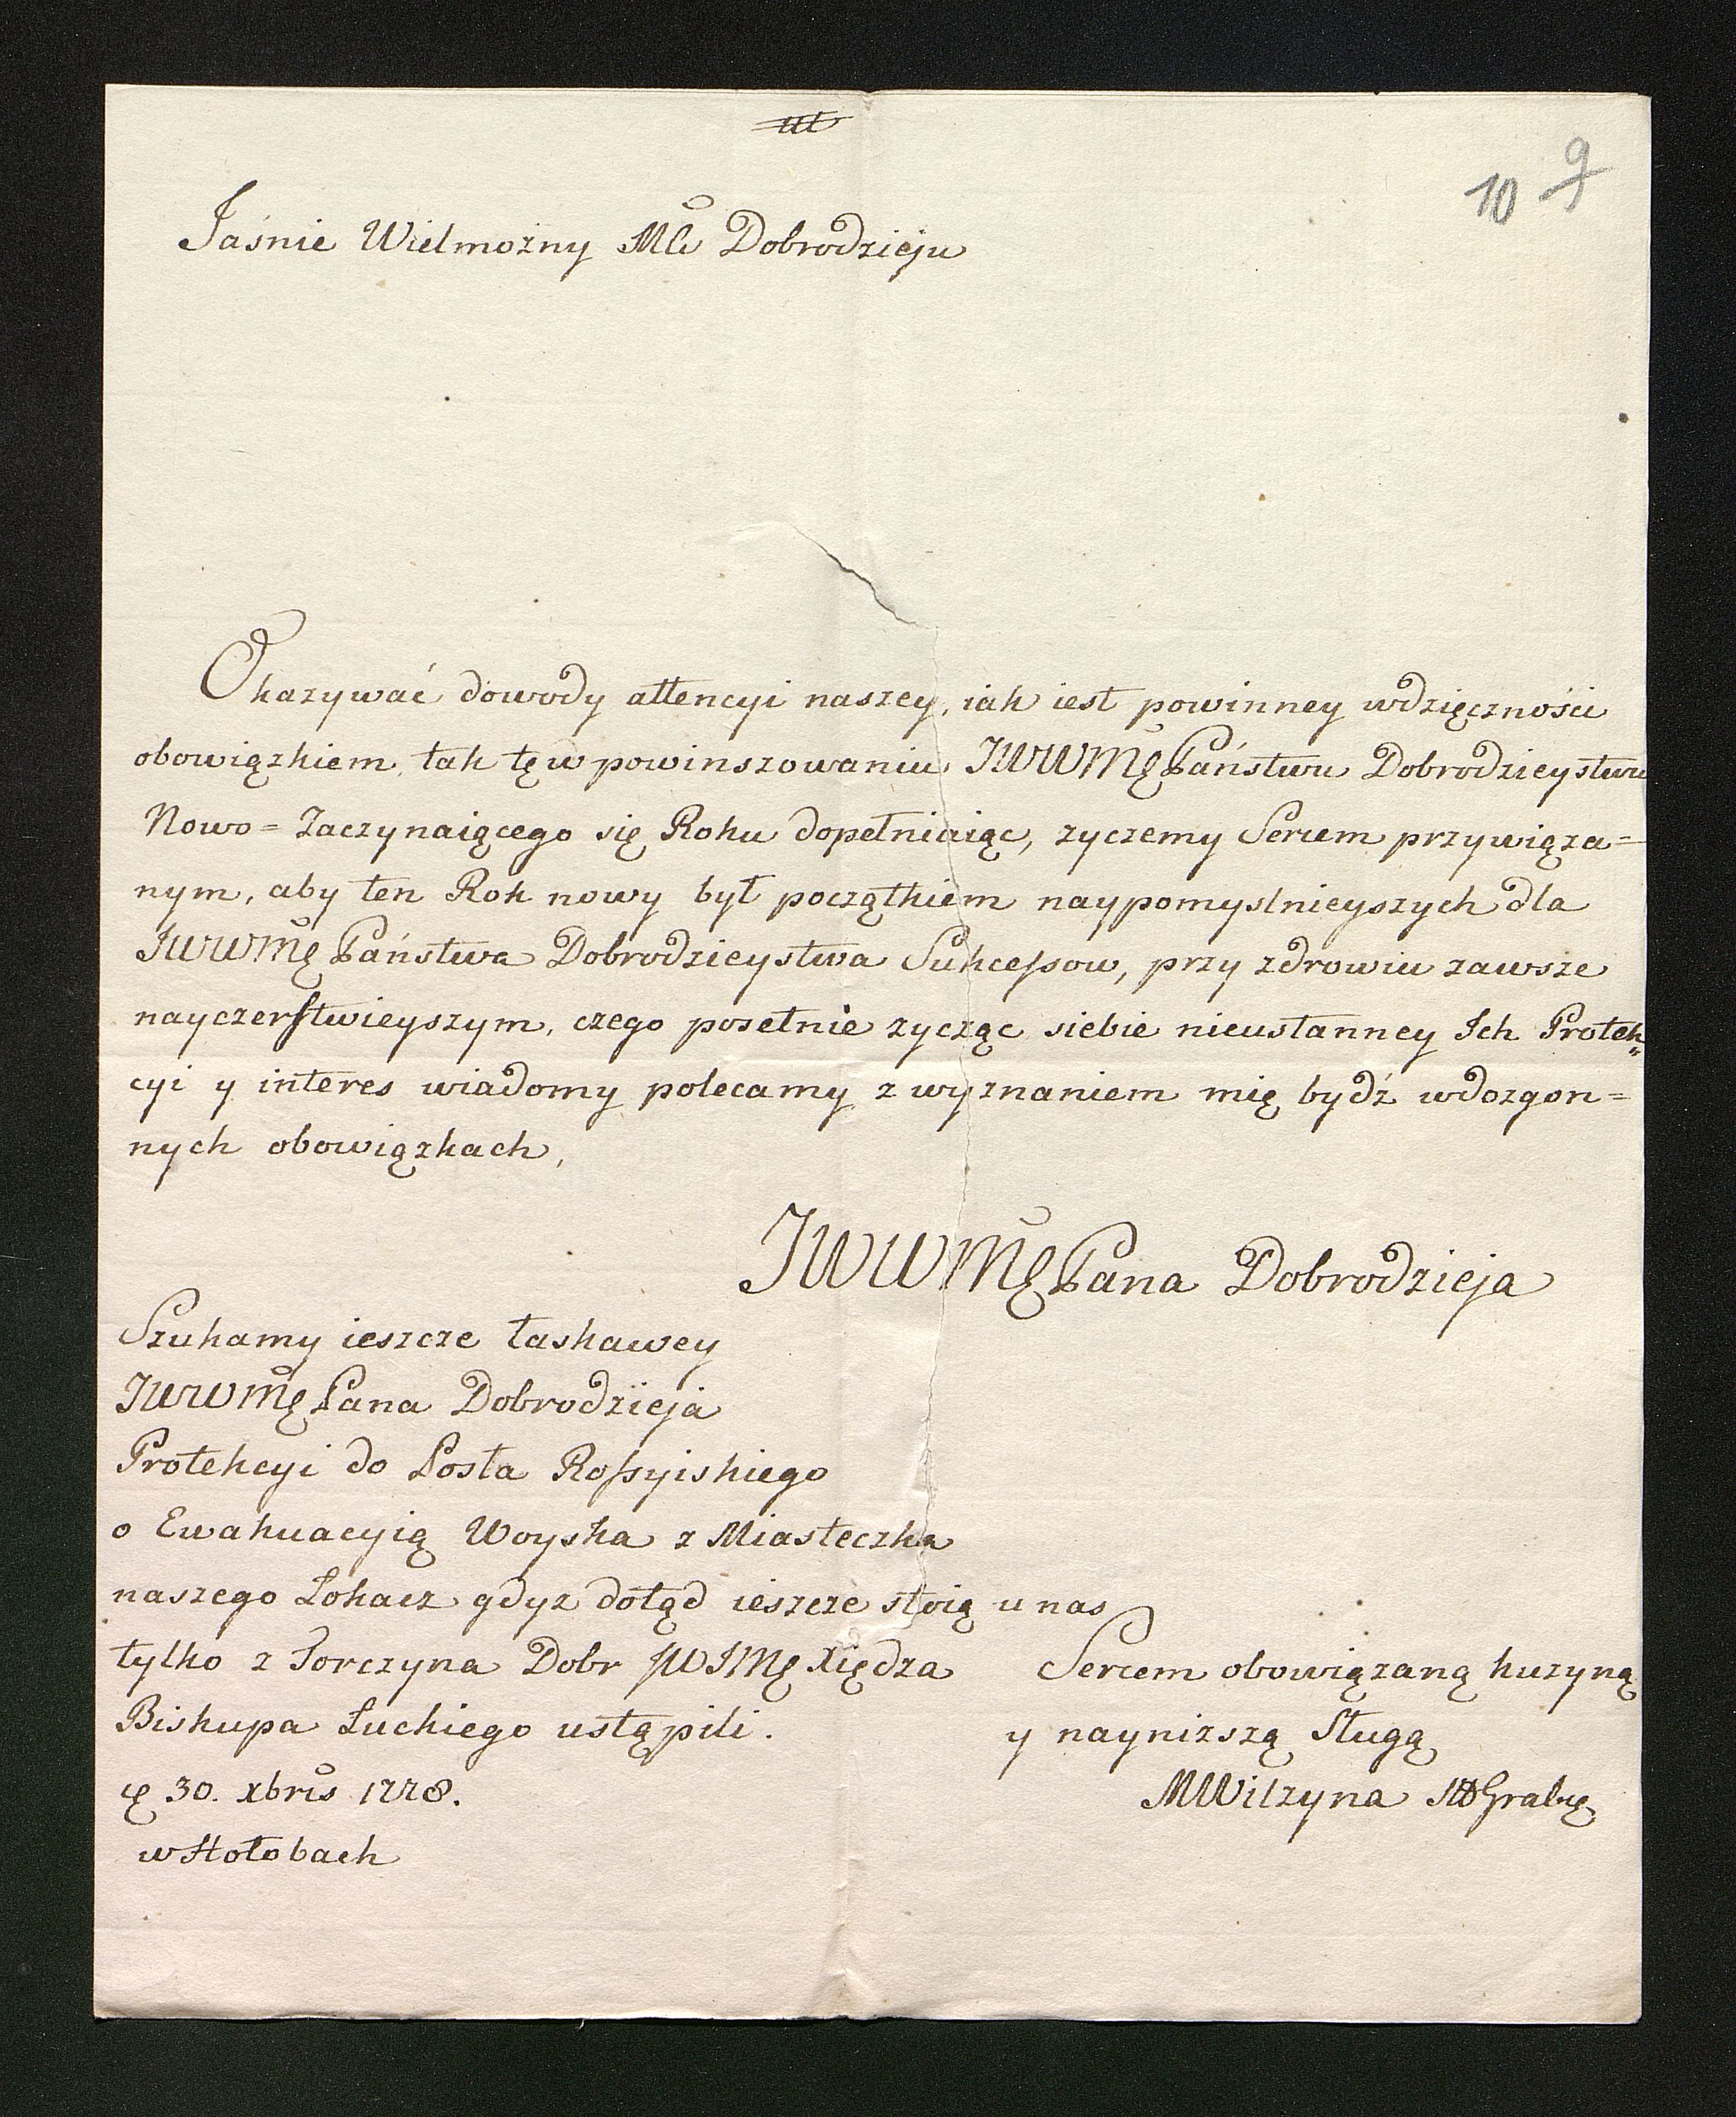 10 9
Jaśnie Wielmożny Mći Dobrodzieju
Okazywać dowody attencyi naszey, iak iest powinney wdzięczności
obowiązkiem, tak tę w powinszowaniu JWWMę Państwu Dobrodzieystwu
Nowo=Zaczynaiącego się Roku dopełniaiąc, zyczemy Sercem przywiąza=
nym, aby ten Rok nowy był początkiem naypomyslnieyszych dla
JWWMę Państwa Dobrodzieystwa Sukcessow, przy zdrowiu zawsze
nayczerstwieyszym, czego posetnie zycząc siebie nieustanney Ich Protek„
cyi y interes wiadomy polecamy z wyznaniem mię bydź wdozgon=
nych obowiązkach,
JWWMę Pana Dobrodzieja
Szukamy ieszcze łaskawey
JWWMę Pana Dobrodzieja
Protekcyi do Posła Rossyiskiego
o Ewakuacyią Woyska z Miasteczka
naszego Lokacz gdyz dotąd ieszcze stoią u nas
tylko z Torczyna Dobr JWJMę Xiędza
Biskupa Łuckiego ustąpili.
30. xbris 1778.
w Hołobach
Sercem obowiązaną kuzyną
y naynizszą Sługą
MWilzyna